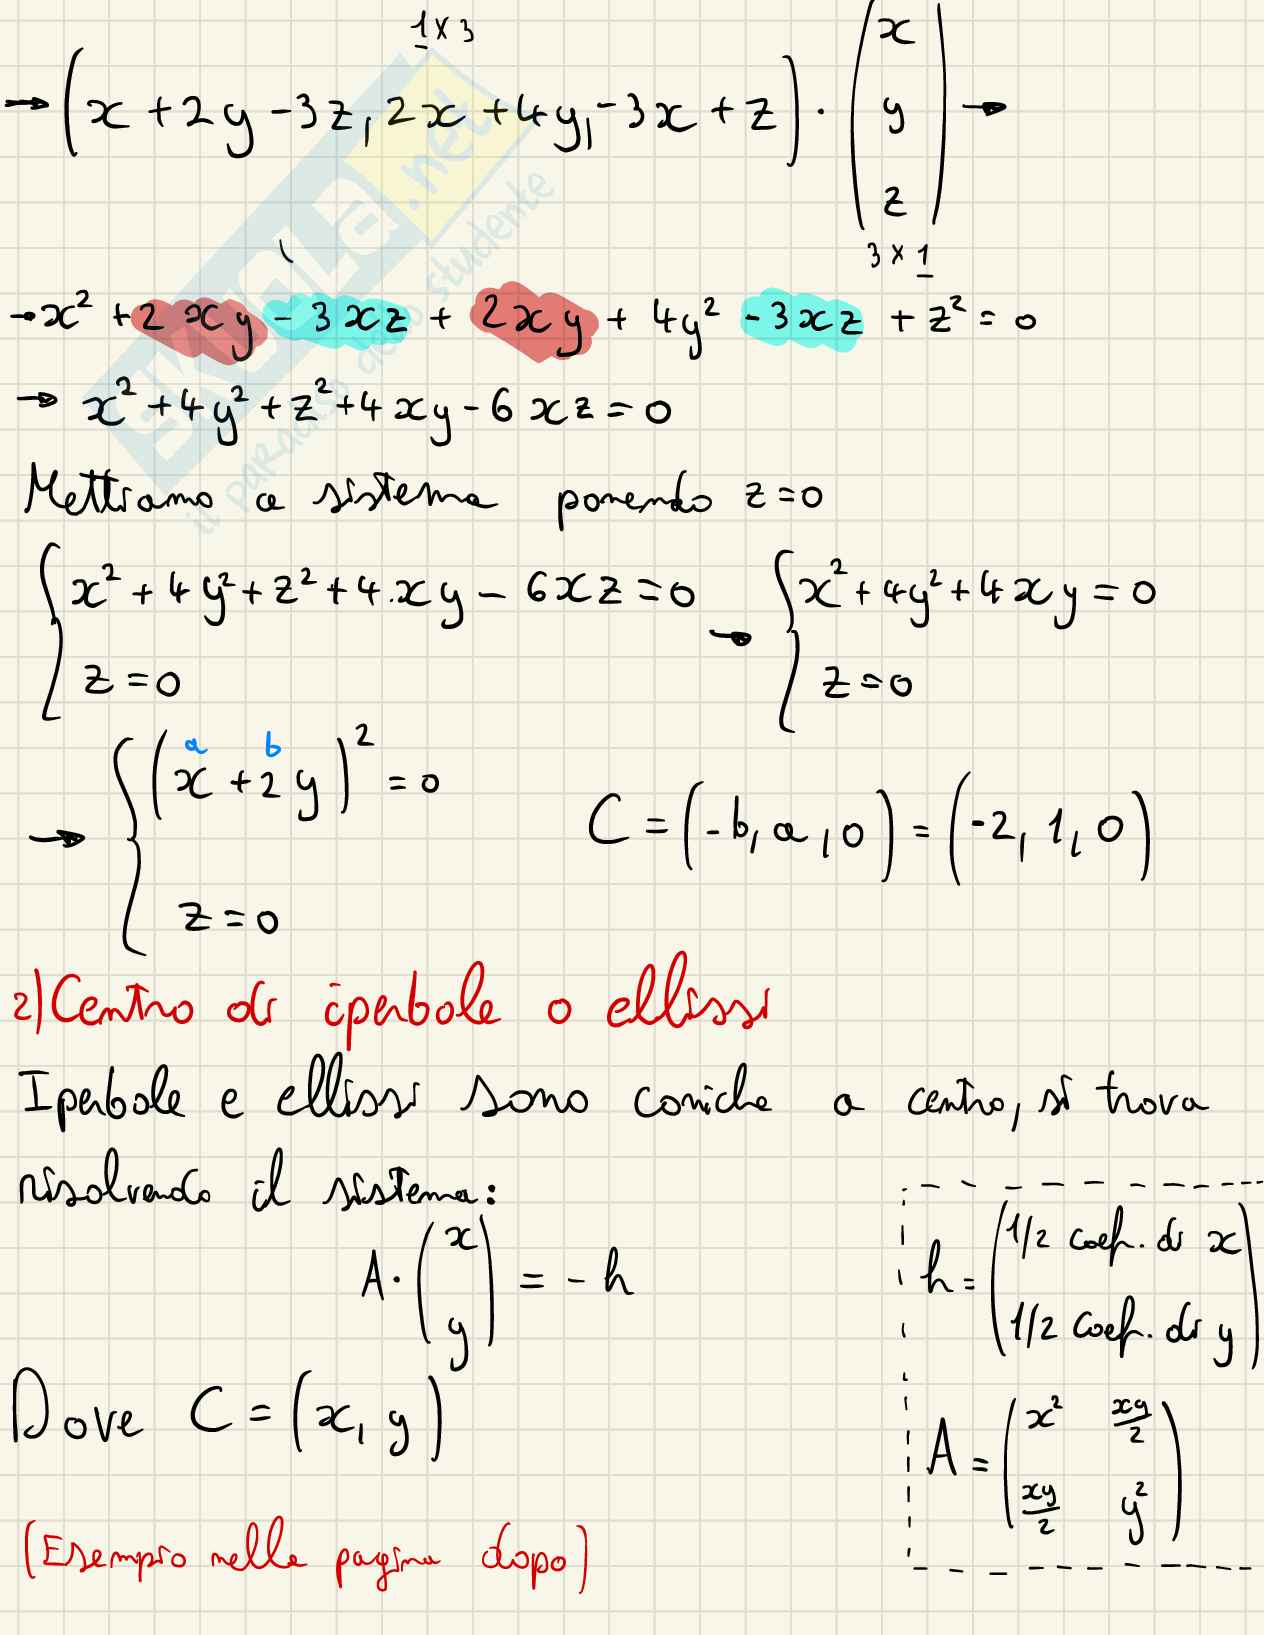 1 x 3
→ (x + 2y - 3z, 2x + 4y, -3x + z) · (x y z) →
3 x 1
→ x² + 2xy - 3xz + 2xy + 4y² - 3xz + z² = 0
→ x² + 4y² + z² + 4xy - 6xz = 0
Mettiamo a sistema ponendo z = 0
{ x² + 4y² + z² + 4·xy - 6xz = 0 → { x² + 4y² + 4xy = 0
z = 0 z = 0
a b
→ { (x + 2y)² = 0 C = (-b, a, 0) = (-2, 1, 0)
z = 0
2) Centro di iperbole o ellissi
Iperbole e ellissi sono coniche a centro, si trova
risolvendo il sistema:
A · (x y) = - h
h = (1/2 coef. di x 1/2 coef. di y)
Dove C = (x, y)
A = (x² xy/2 xy/2 y²)
(Esempio nella pagina dopo)
SKUOLA.net
il paradiso dello studente